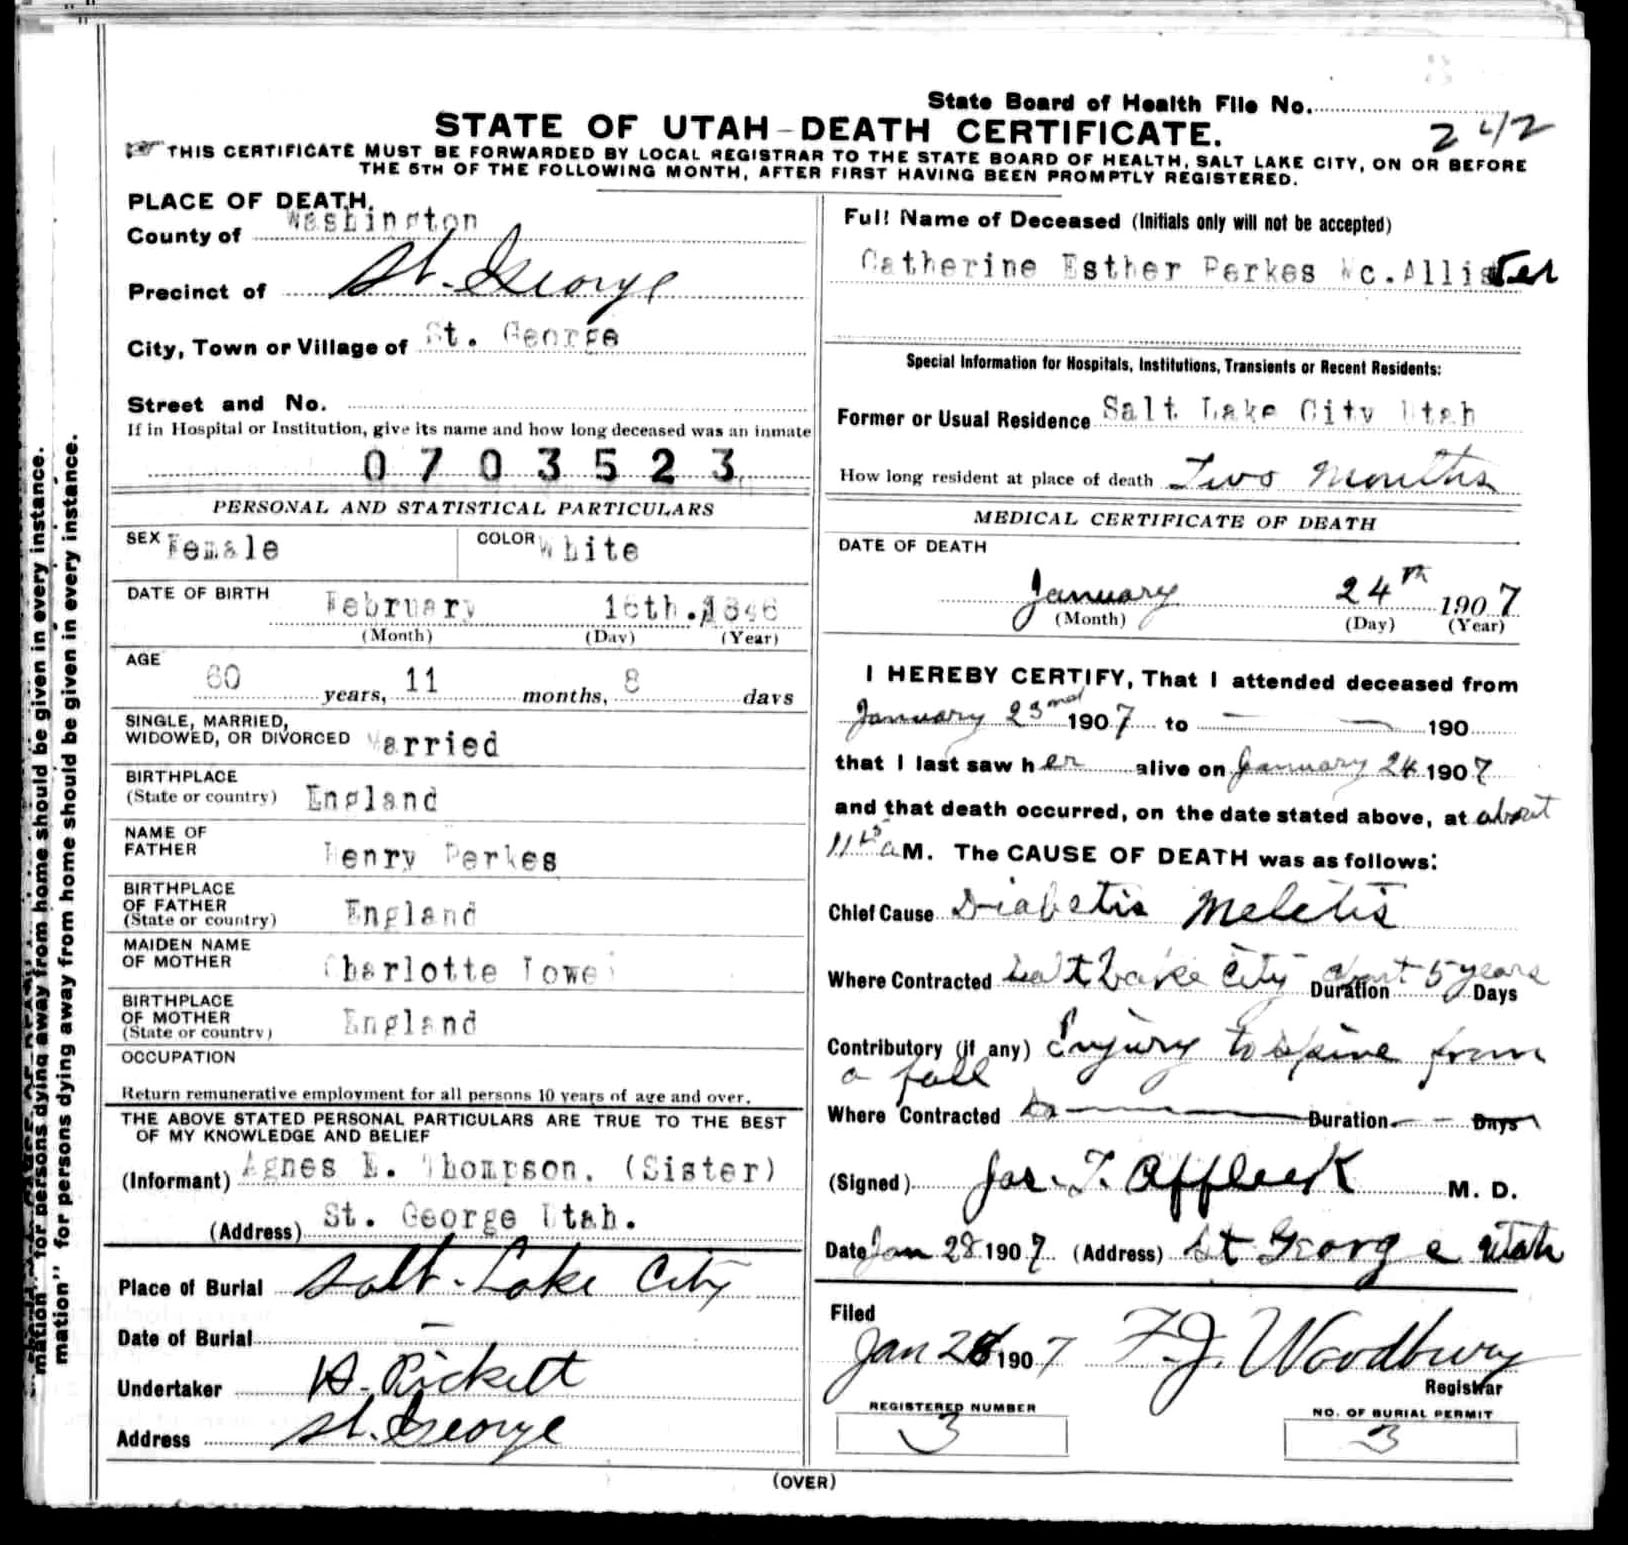 State Board of Health File No.
242
STATE OF UTAH-DEATH CERTIFICATE.
THIS CERTIFICATE MUST BE FORWARDED BY LOCAL REGISTRAR TO THE STATE BOARD OF HEALTH, SALT LAKE CITY, ON OR BEFORE
THE 5TH OF THE FOLLOWING MONTH, AFTER FIRST HAVING BEEN PROMPTLY REGISTERED.
PLACE OF DEATH.
County of Washington
Precinct of St. George
City, Town or Village of St. George
Street and No.
If in Hospital or Institution, give its name and how long deceased was an inmate
0703523
PERSONAL AND STATISTICAL PARTICULARS
SEX Female COLOR White
DATE OF BIRTH February 16th. 1846
(Month) (Day) (Year)
AGE 60 years, 11 months, 8 days
SINGLE, MARRIED,
WIDOWED, OR DIVORCED Married
BIRTHPLACE
(State or country) England
NAME OF
FATHER Henry Perkes
BIRTHPLACE
OF FATHER
(State or country) England
MAIDEN NAME
OF MOTHER Charlotte
BIRTHPLACE
OF MOTHER
(State or country) England
OCCUPATION
Return remunerative employment for all persons 10 years of age and over.
THE ABOVE STATED PERSONAL PARTICULARS ARE TRUE TO THE BEST
OF MY KNOWLEDGE AND BELIEF
(Informant) Agnes E. Thompson. (Sister)
(Address) St. George Utah.
Place of Burial Salt-Lake City
Date of Burial –
Undertaker Pickett
Address St. George
Full Name of Deceased (Initials only will not be accepted)
Catherine Esther Perkes Mc.Allister
Special Information for Hospitals, Institutions, Transients or Recent Residents:
Former or Usual Residence Salt Lake City Utah
How long resident at place of death Two Months
MEDICAL CERTIFICATE OF DEATH
DATE OF DEATH
January 24th 1907
(Month) (Day) (Year)
I HEREBY CERTIFY, That I attended deceased from
January 23rd 1907 to — — 190
that I last saw her alive on January 24 1907
and that death occurred, on the date stated above, at about
a M. The CAUSE OF DEATH was as follows:
Chief Cause Diabetis Meletis
Where Contracted Salt Lake City Duration about 5 years Days
Contributory (if any) Injury to spine from
a fall
Where Contracted Duration — - Days
(Signed) Jas. T. Affleck M. D.
Date Jan 28 1907 (Address) St George Utah
Filed
Jan 28 1907 F.J. Woodbury
Registrar
REGISTERED NUMBER
3
NO. OF BURIAL PERMIT
3
(OVER)
mation" for persons dying away from home should be given in every instance.
mation" for persons dying away from home should be given in every instance.